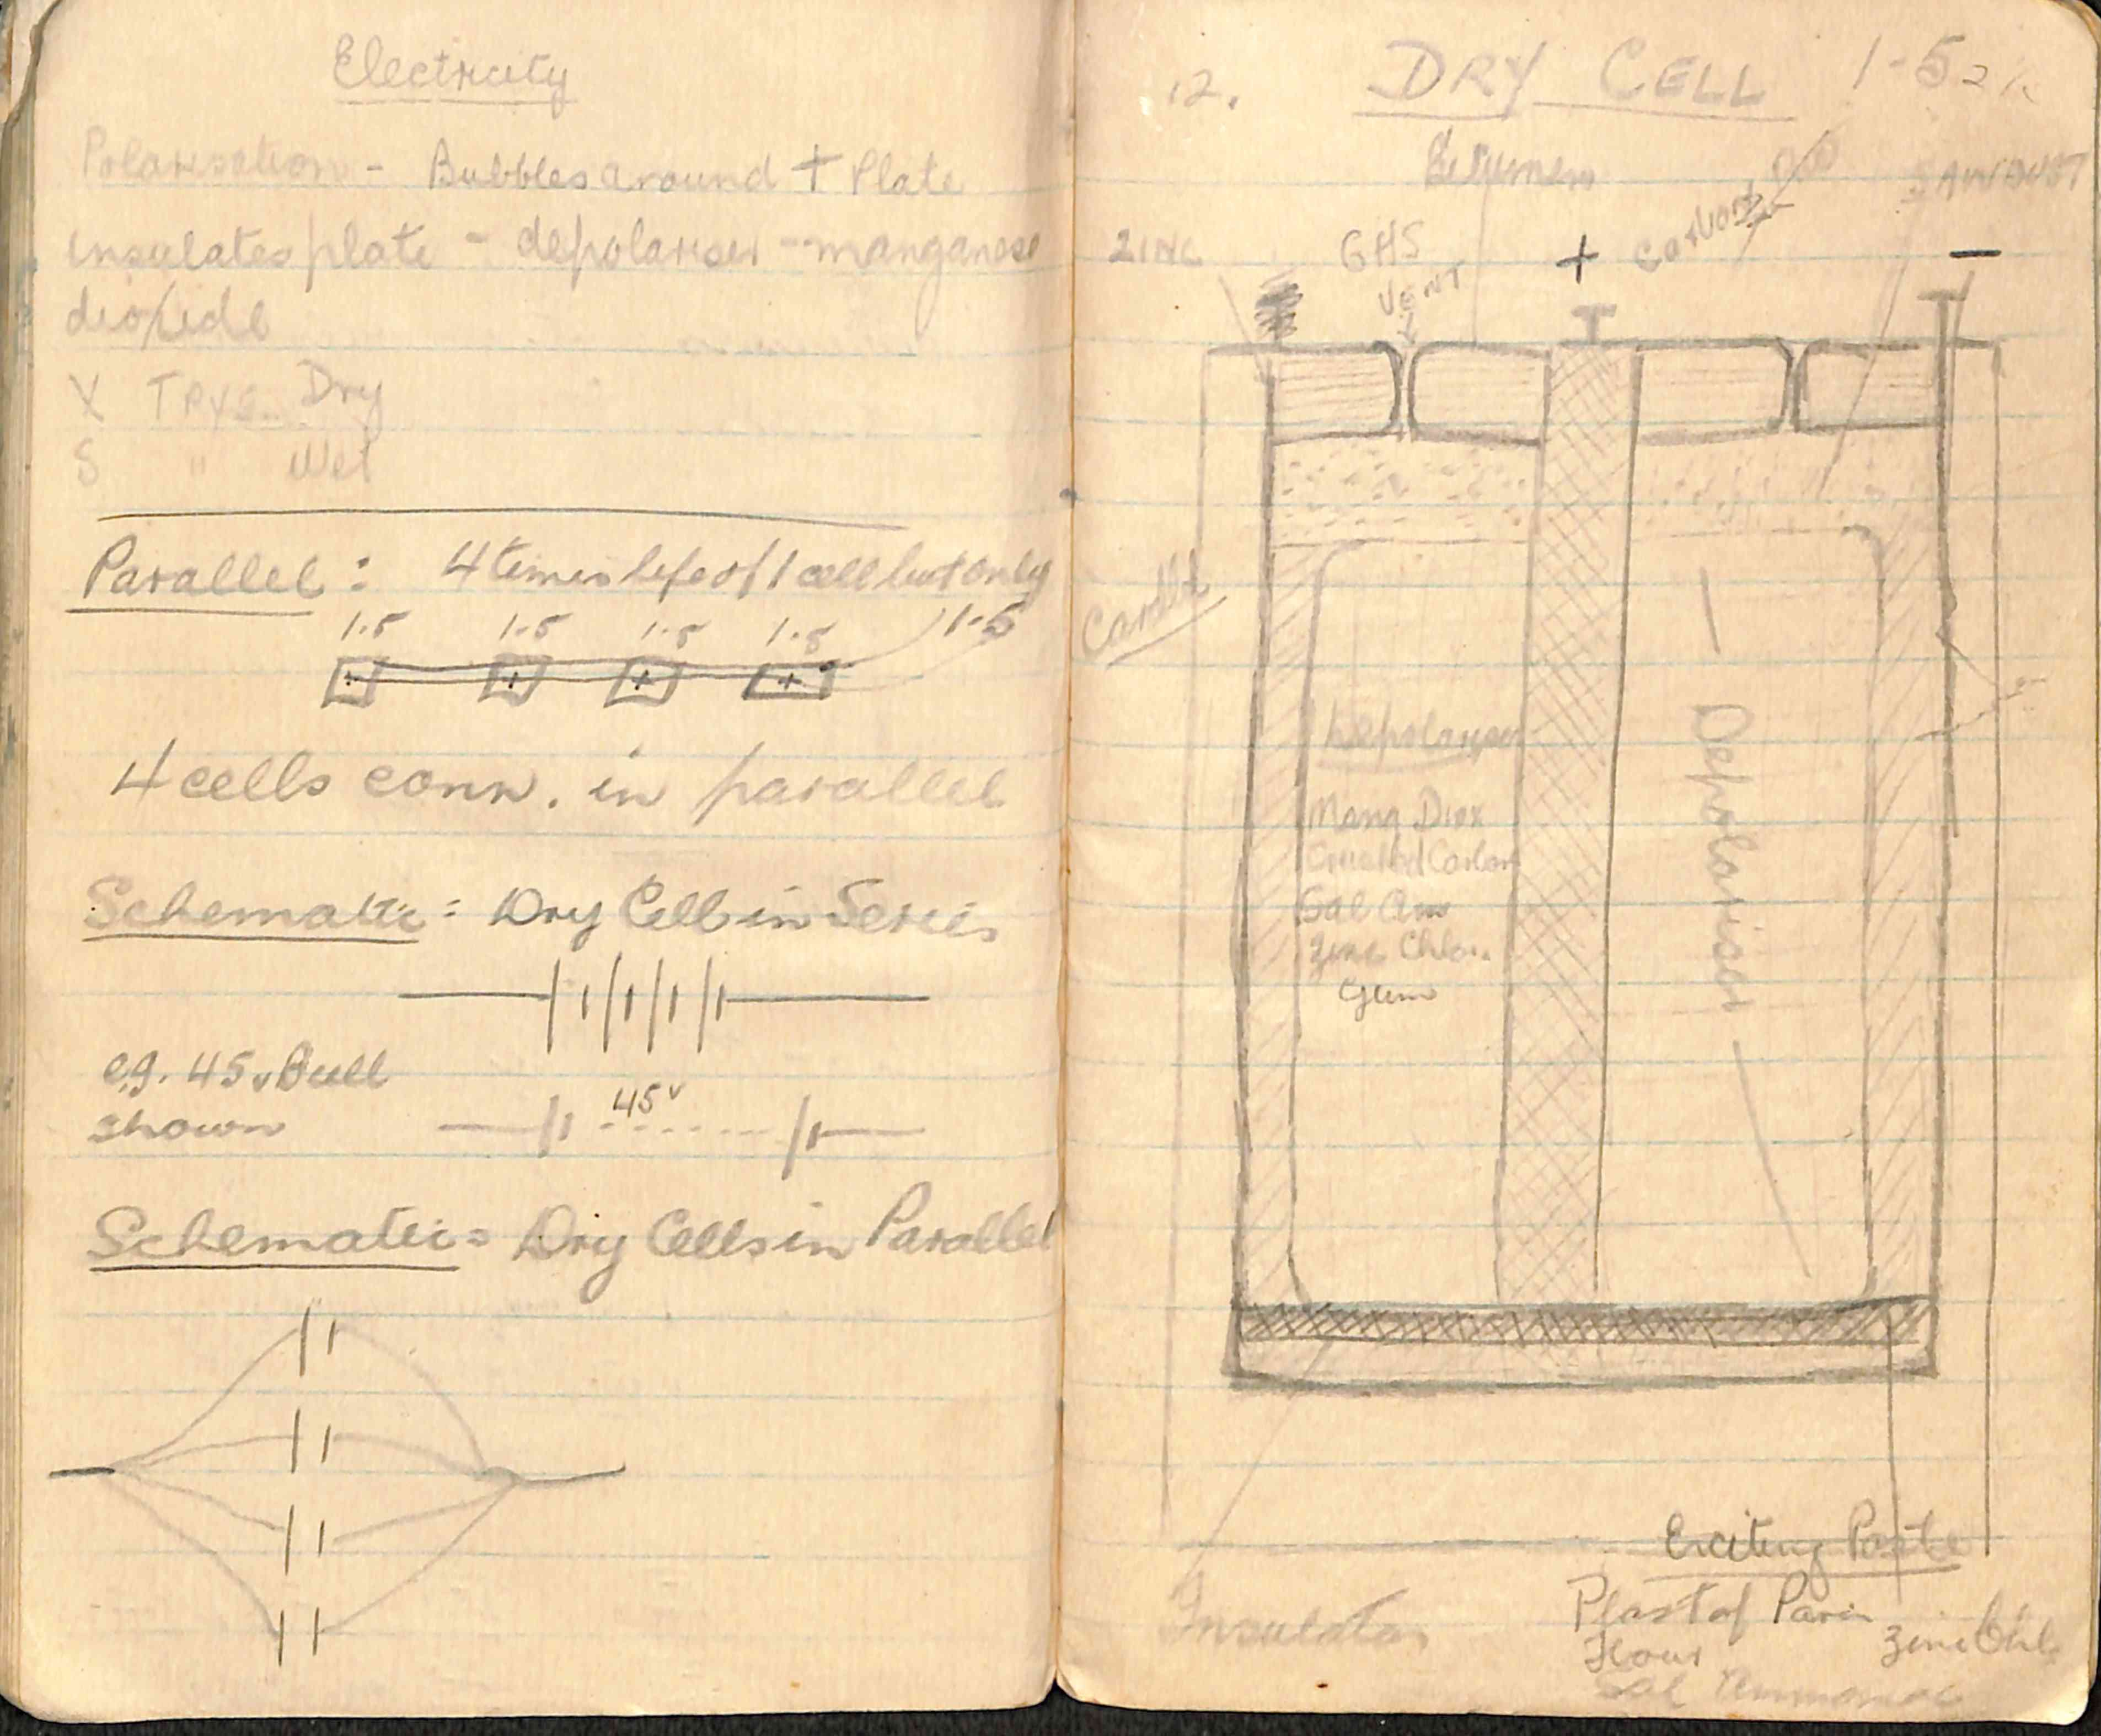 Electricity
Polarisation - Bubbles around + Plate
insulates plate - depolariser - manganese
dioxide
X Type Dry
S " Wet
Parallel: 4 times life of 1 cell but only
1.5 1.5 1.5 1.5 1.5
+ + + +
4 cells conn. in parallel
Schematic: Dry Cells in Series
e.g. 45v
shown
45v
Schematic: Dry Cells in Parallel
12. DRY CELL 1-5
Bitumen
SAWDUST
Carbon Rod
ZINC GAS + -
VENT
Depolariser
Mang Diox
Crushed Carbon
Sal Am
Zinc Chlor.
Gum
- Depolariser -
Exciting Paste
Insulator
Plast of Paris
Flour
Zinc Chlo
Sal Ammoniac